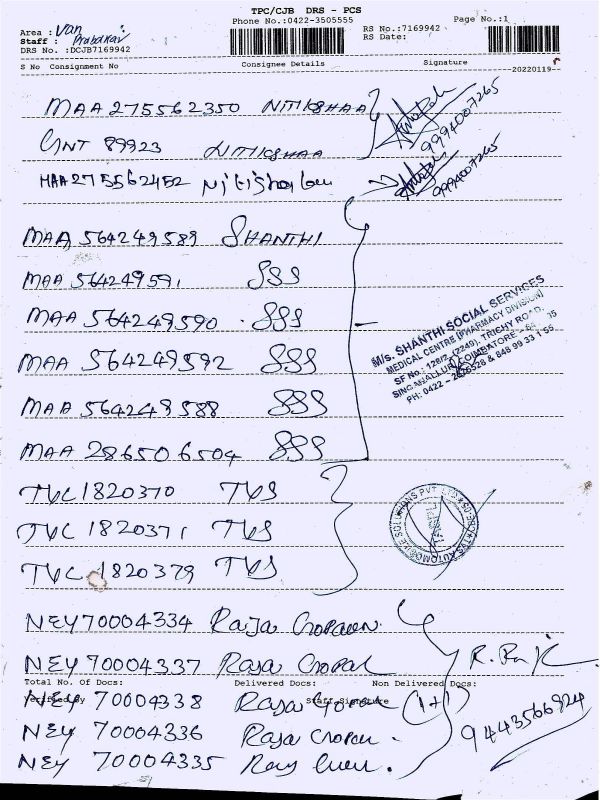 TPC/CJB DRS - PCS
Phone No.:0422-3505555
Page No.:1
Area : Van
Staff : Prabakar
RS No.:7169942
RS Date:
DRS No. :DCJB7169942
S No Consignment No Consignee Details Signature
20220119
MAA 275562350 NITIKSHAA
9994007265
CNT 89923 NITIKSHAA
MAA 275562452 Nitisha
9994007265
MAA 564249589 SHANTHI
MAA 564249591 SSS
MAA 564249590 SSS
MAA 564249592 SSS
MAA 564249588 SSS
MAA 286506504 SSS
M/s. SHANTHI SOCIAL SERVICES
MEDICAL CENTRE (PHARMACY DIVISION)
SF No.: 128/2, (2240), TRICHY ROAD,
SINGANALLUR, COIMBATORE
PH: 0422 & 848 99 33 1 55
TVC 1820370 TVS
TVC 1820371 TVS
TVC 1820379 TVS
AUTOMOBILE SOLUTIONS PVT LTD
NEY 70004334 Raja Gopal
NEY 70004337 Raja Gopal
Total No. Of Docs: Delivered Docs: Non Delivered Docs:
NEY 70004338 Raja Gopal (1+1)
Verified By Staff Signature
NEY 70004336 Raja Gopal
9443566924
NEY 70004335